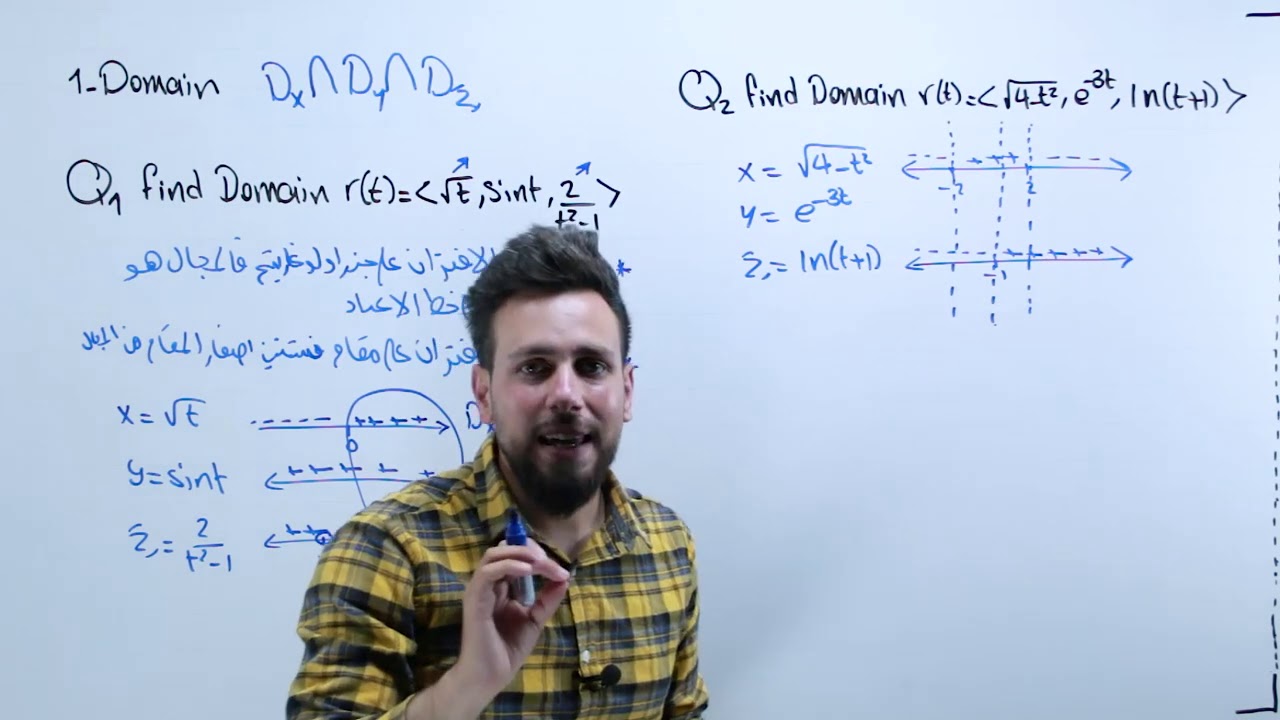 1-Domain Dx∩Dy∩Dz
Q1 find Domain r(t)=<√t, sint, 2/(t²-1)>
الاقتران على جذر او لوغاريتم فالمجال هو
خط الاعداد
على مقام فنستثني اصفار المقام من المجال
x = √t
---- ++++ D
0
y = sint
++++ +
z = 2/(t²-1)
++
Q2 find Domain r(t)=<√4-t², e^-3t, ln(t+1)>
x = √4-t²
--- +++ ----
-2 2
y = e^-3t
z = ln(t+1)
----- ++++
-1